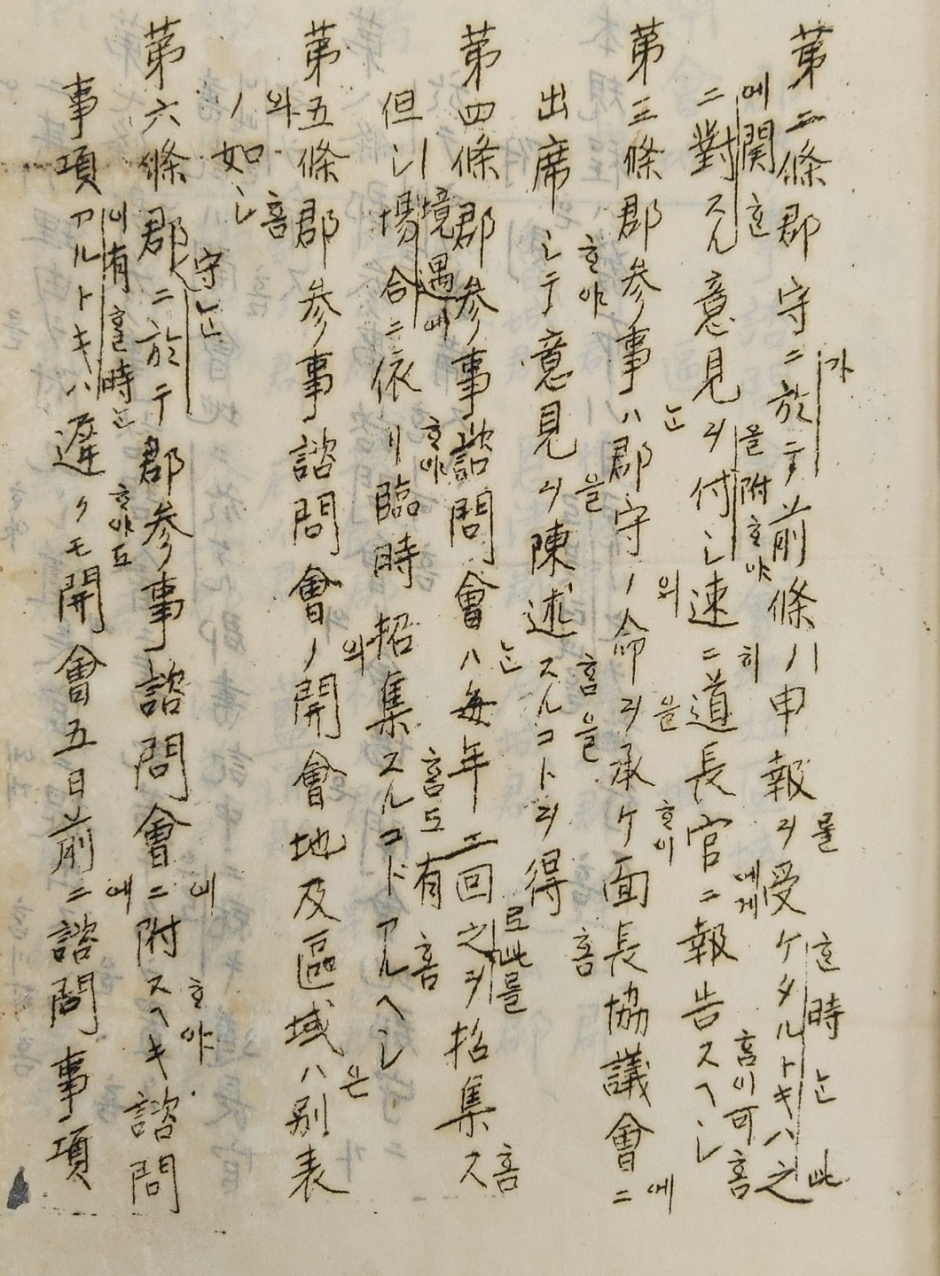 第二條郡守ニ於テ前條ノ申報ヲ受ケタルトキハ之
가 를 한 時 는 此
ニ對スル意見ヲ付シ速ニ道長官ニ報告スヘシ
에 関 한 을 附 하야 히 에게 홈이 可 홈
第三條郡参事ハ郡守ノ命ヲ承ケ面長協議會ニ
는 의 을 에
出席シテ意見ヲ陳述スルコトヲ得
하야 을 홈을 홈
第四條郡参事諮問會ハ毎年二回之ヲ招集ス
는 로 此를 홈
但シ場合ニ依リ臨時招集スルコトアルヘシ
境遇에 하야 홈도 有 홈
第五條郡参事諮問會ノ開會地及區域ハ別表
의 은
ノ如シ
와 홈
第六條郡ニ於テ郡参事諮問會ニ附スヘキ諮問
守는 에 하야
事項アルトキハ遅クモ開會五日前ニ諮問事項
이 有 할 時는 하야도 에